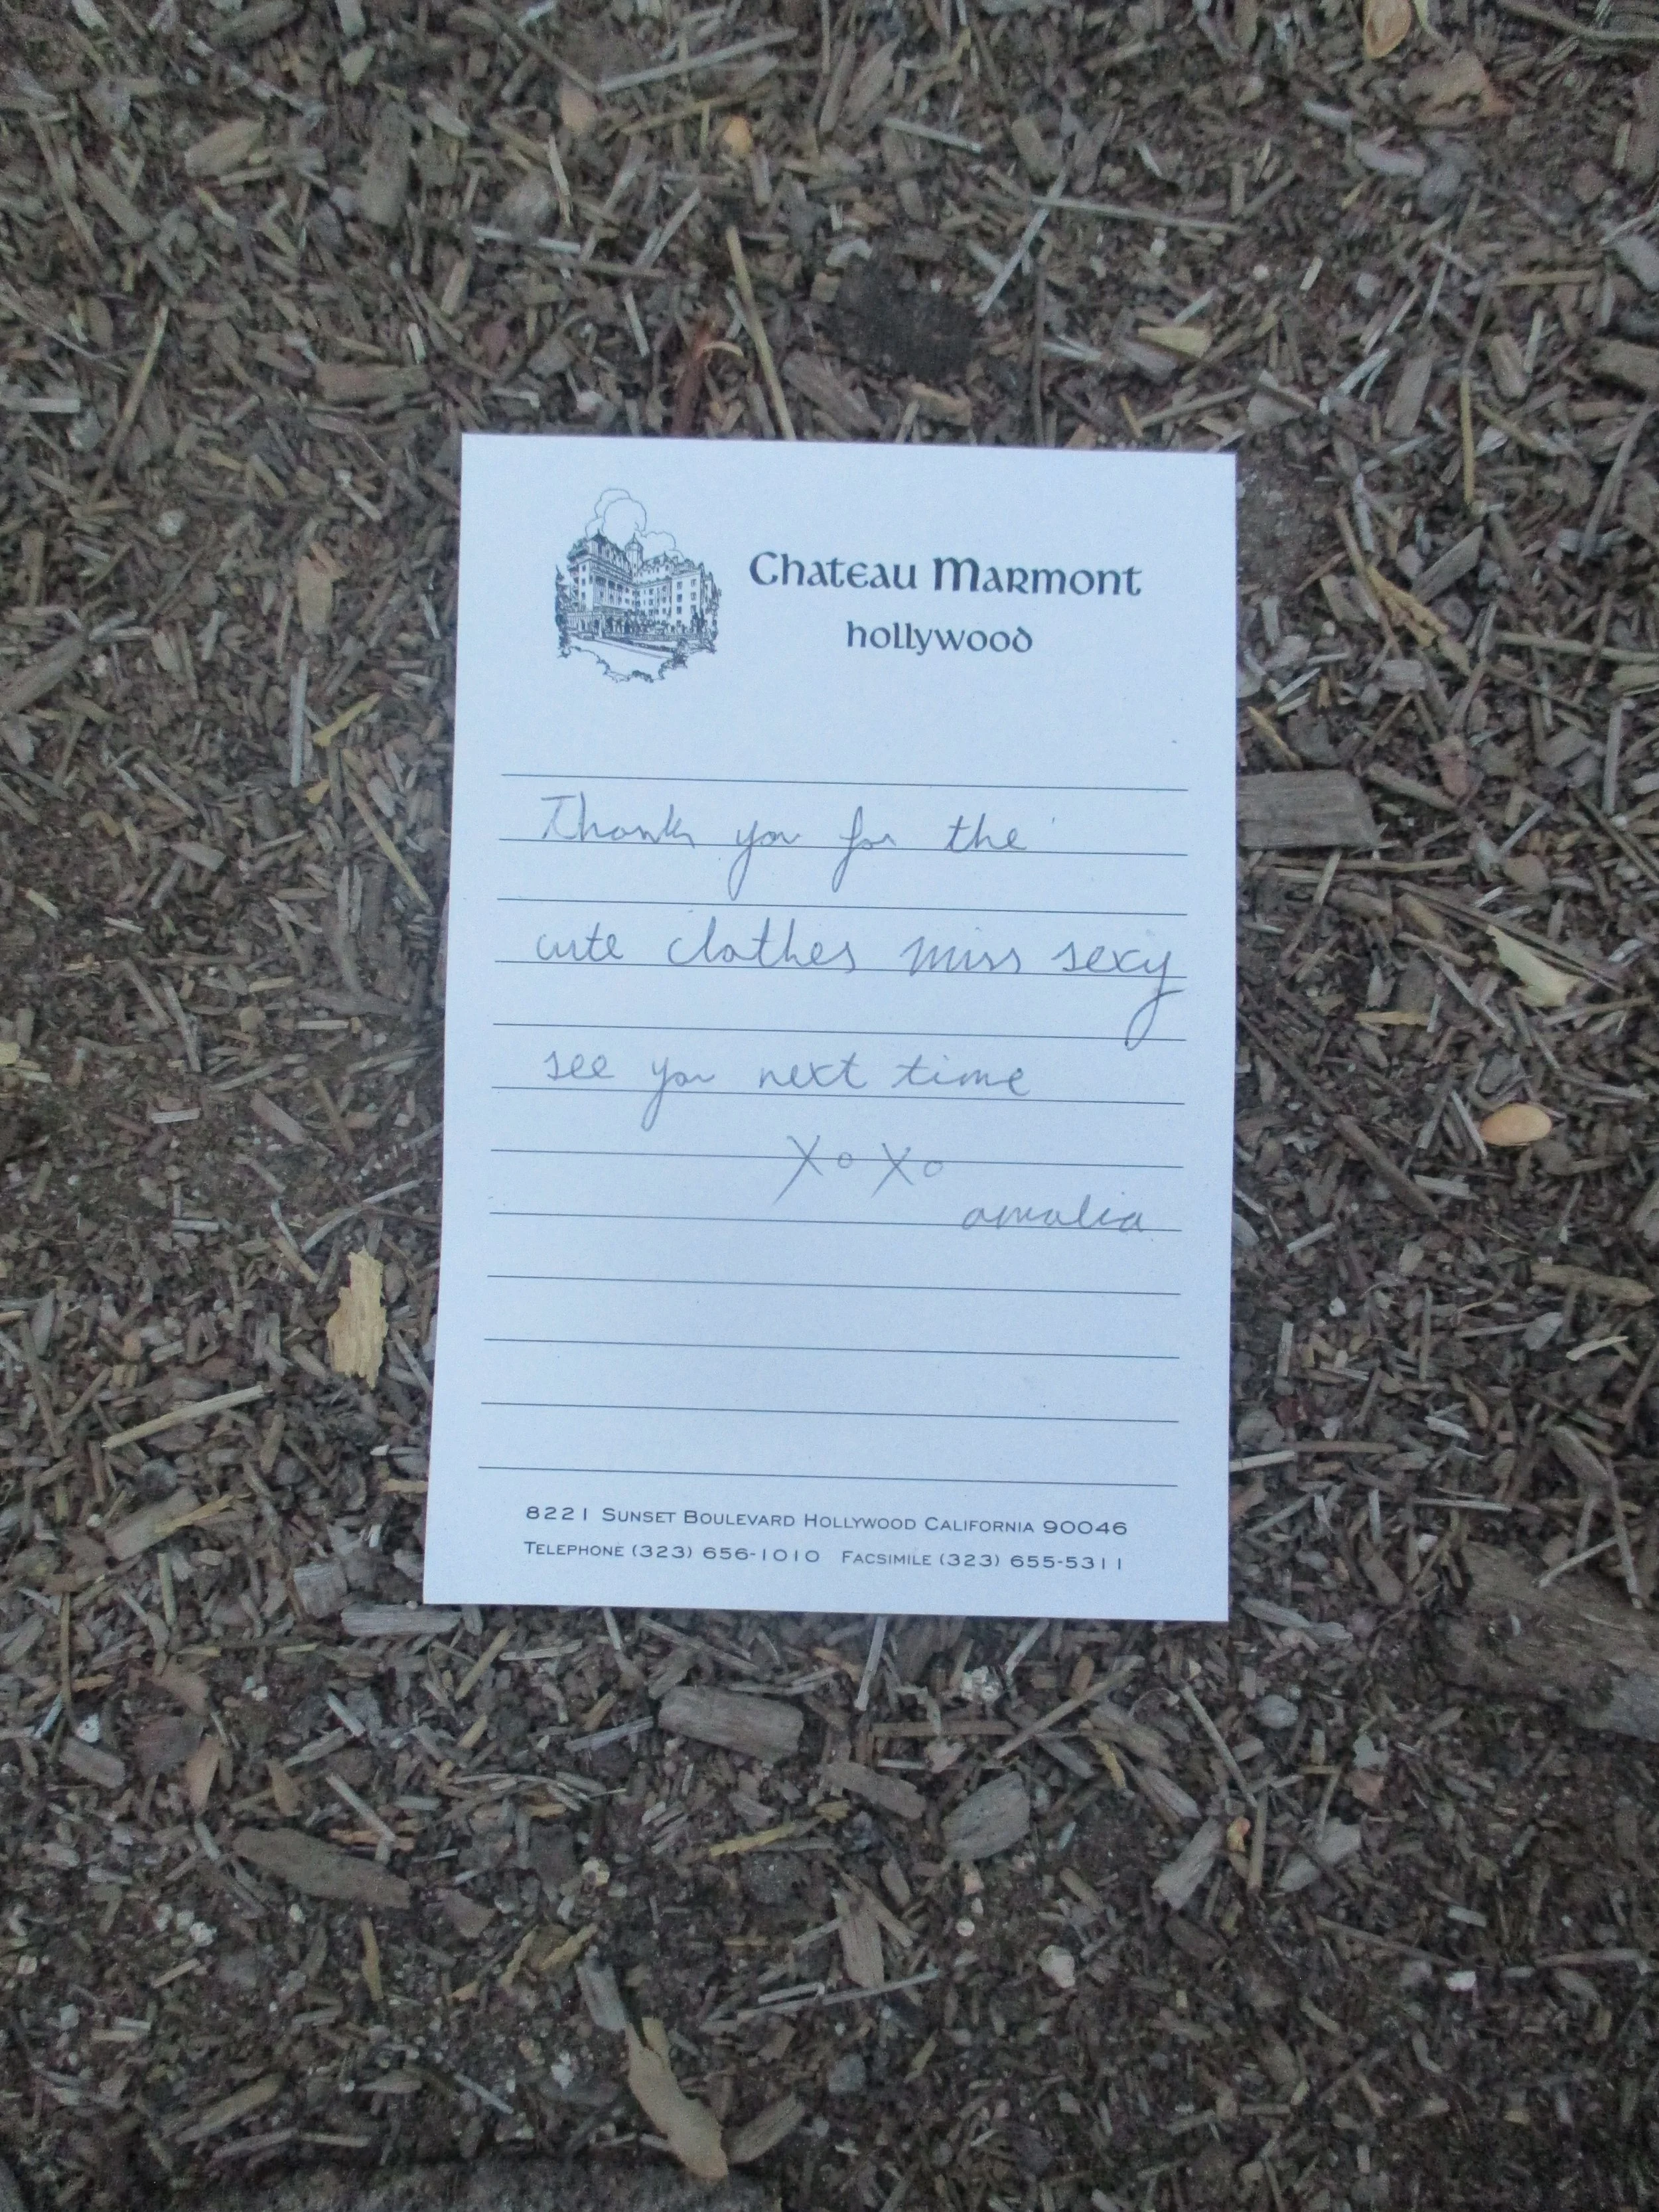 Chateau Marmont
hollywood
Thank you for the
cute clothes miss sexy
see you next time
XoXo
amalia
8221 Sunset Boulevard Hollywood California 90046
Telephone (323) 656-1010 Facsimile (323) 655-5311